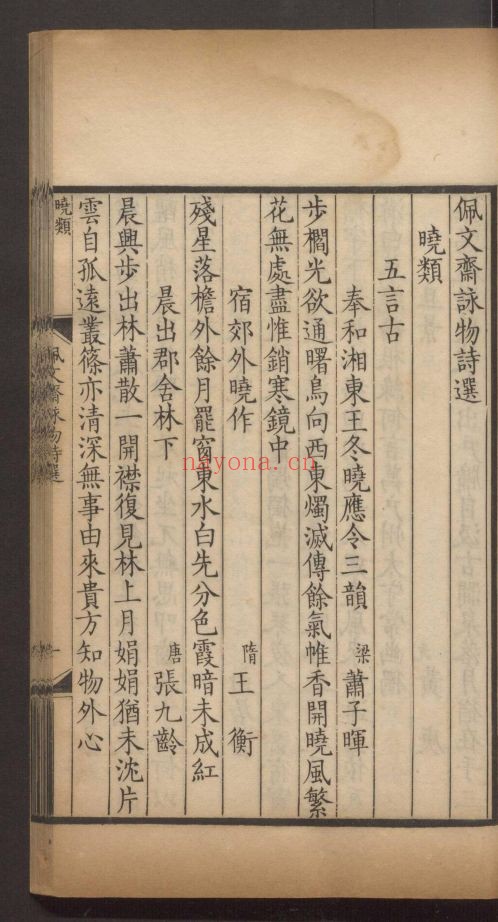 佩文齋詠物詩選
曉類
五言古
奉和湘東王冬曉應令三韻 梁 蕭子暉
步櫩光欲通曙鳥向西東燭滅傳餘氣帷香開曉風繁
花無處盡惟銷寒鏡中
宿郊外曉作 隋 王衡
殘星落檐外餘月罷窗東水白先分色霞暗未成紅
晨出郡舍林下 唐 張九齡
晨興步出林蕭散一開襟復見林上月娟娟猶未沈片
雲自孤遠叢篠亦清深無事由來貴方知物外心
曉類
佩文齋詠物詩選
一
nayona.cn